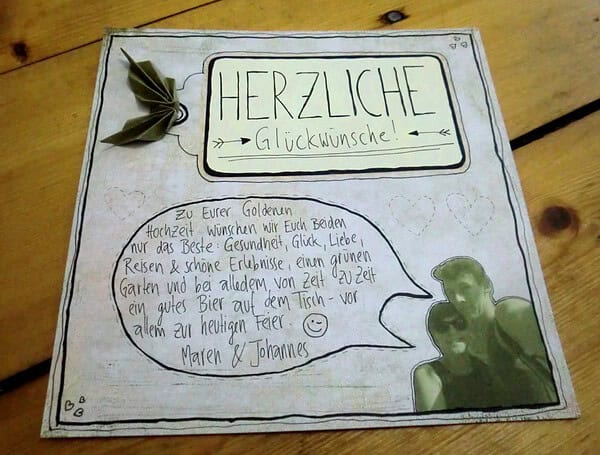 HERZLICHE
Glückwünsche!
Zu Eurer Goldenen
Hochzeit wünschen wir Euch Beiden
nur das Beste: Gesundheit, Glück, Liebe,
Reisen & schöne Erlebnisse, einen grünen
Garten und bei alledem, von Zeit zu Zeit
ein gutes Bier auf dem Tisch - vor
allem zur heutigen Feier. ☺
Maren & Johannes